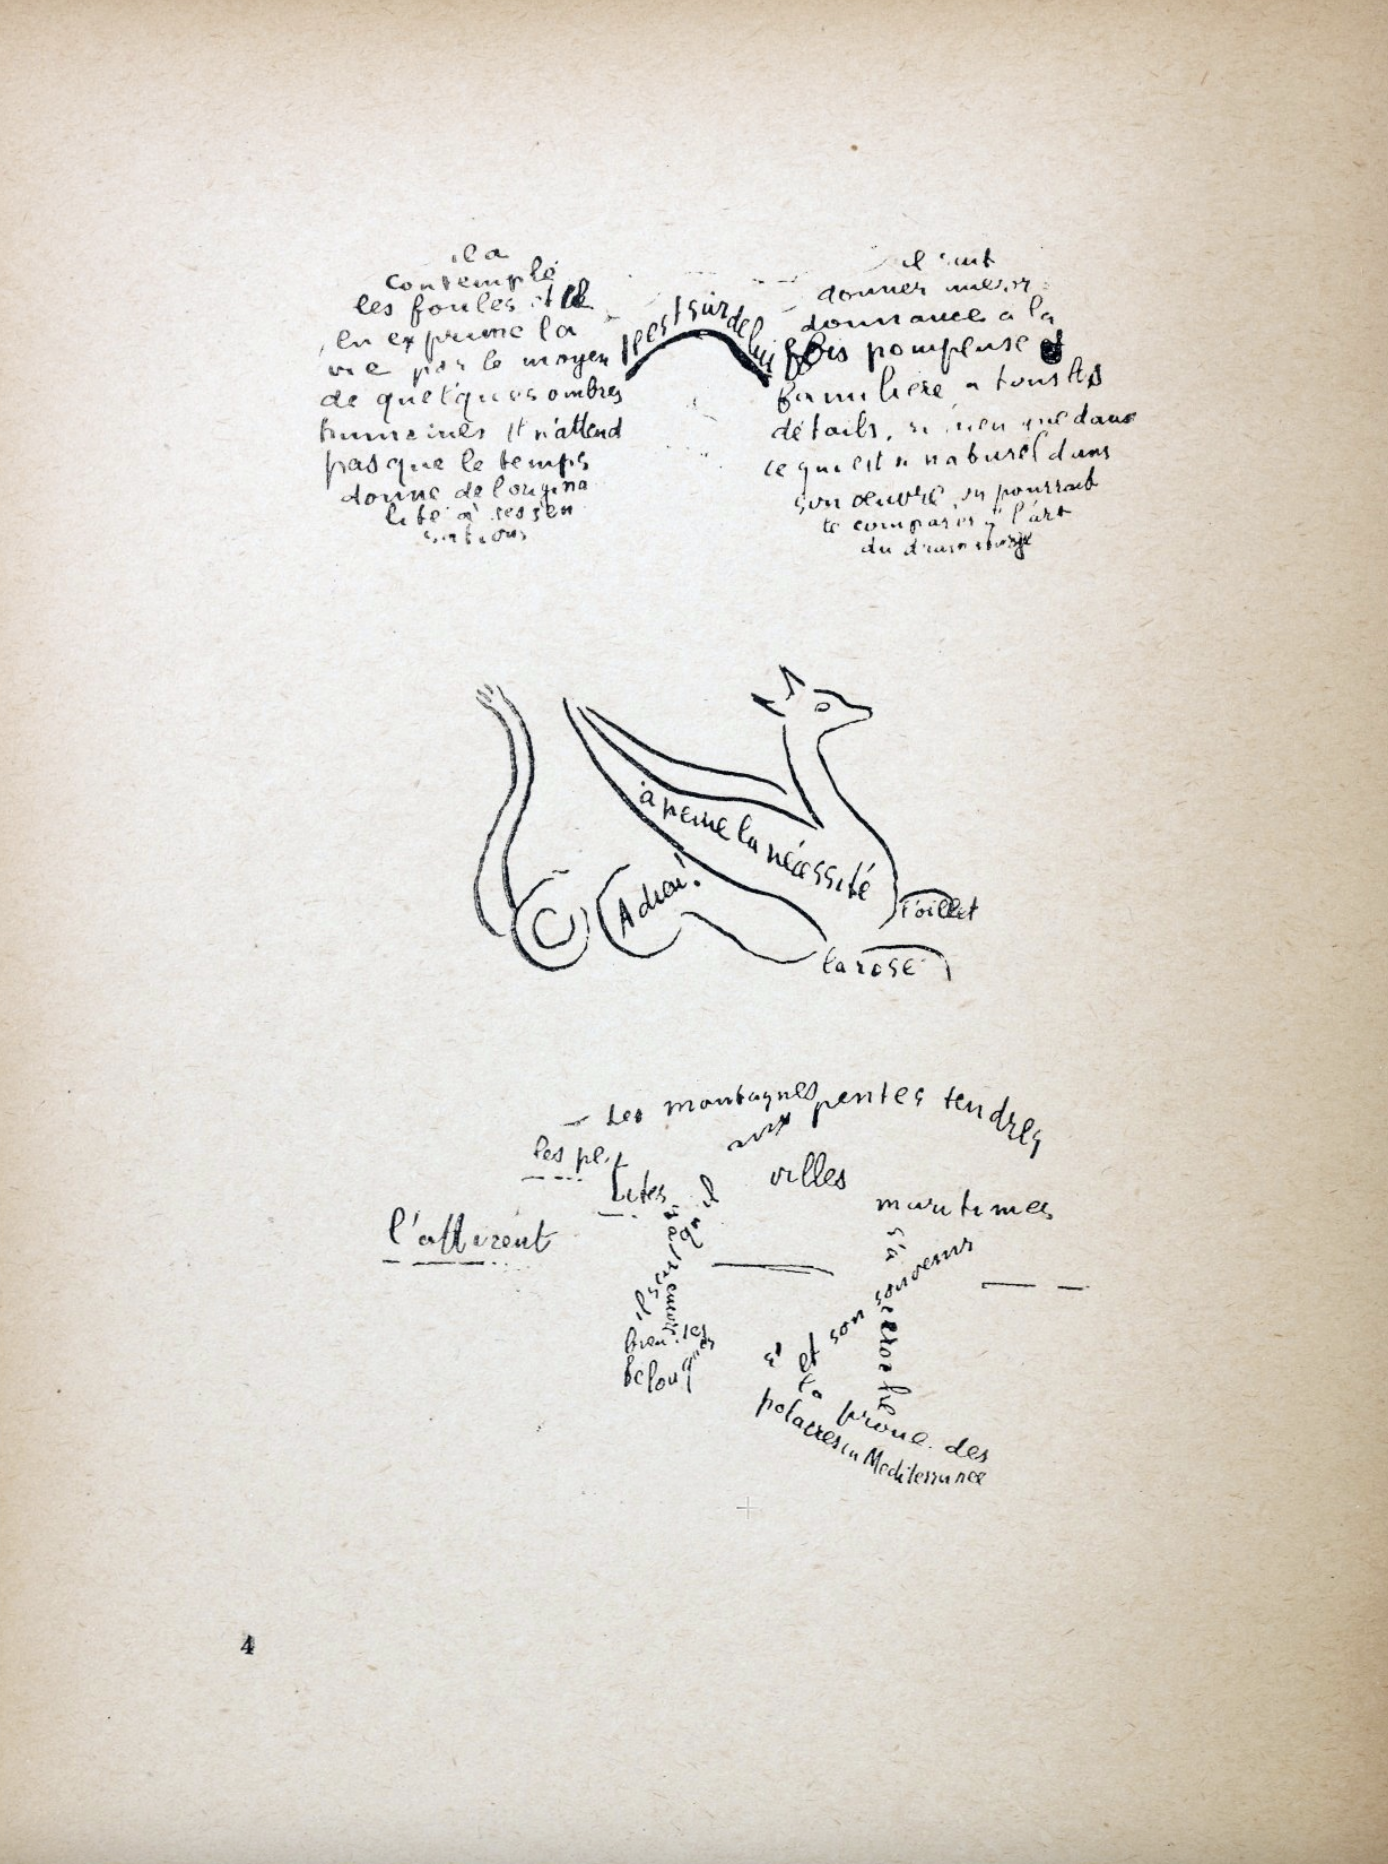 il a
contemplé
les foules et il
en exprime la
vie par le moyen
de quelques ombres
humaines Il n'attend
pas que le temps
donne de l'origina
lité à ses sen
sations
Il est sûr de lui
il
donner
donnance à la
fois pompeuse et
familière à tous les
détails, si bien que dans
ce qui est si naturel dans
son œuvre, on pourrait
le comparer à l'art
du dramaturge
à peine la nécessité
Adieu!
l'œillet
la rose
Les montagnes aux pentes tendres
les pe
tites villes
maritimes
l'attirent
bien les
souvenir
son
et
la proue des
polacres en Mediterranée
4